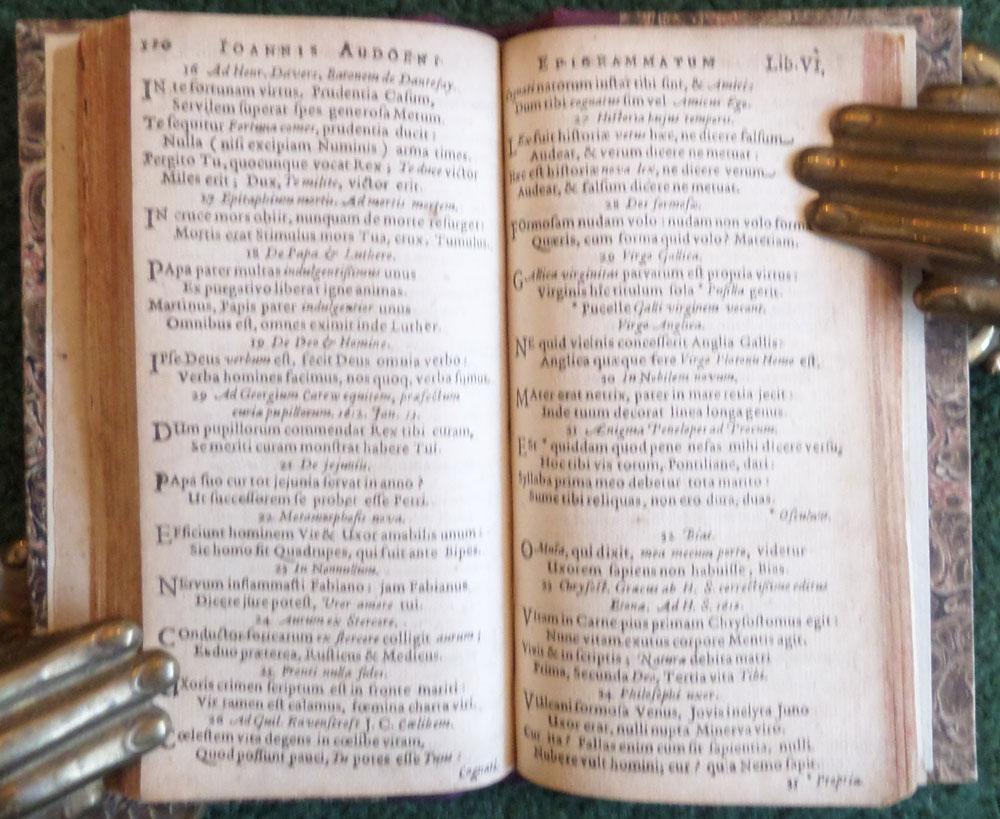 IOANNIS AUDOENI
16 Ad Henr. Davers, Baronem de Dantesey.
IN te fortunam virtus, Prudentia Casum,
Servilem superat spes generosa Metum.
Te sequitur Fortuna comes, prudentia ducit:
Nulla (nisi excipiam Numinis) arma times.
Pergito Tu, quocunque vocat Rex; Te duce victor
Miles erit; Dux, Te milite, victor erit.
17 Epitaphium mortis. Ad mortis mortem.
IN cruce mors obiit, nunquam de morte resurget:
Mortis erat Stimulus mors Tua, crux, Tumulus.
18 De Papa & Luthero.
PApa pater multas indulgentissimus unus
Ex purgativo liberat igne animas.
Martinus, Papis pater indulgentior unus
Omnibus est, omnes eximit inde Luther.
19 De Deo & Homine.
IPse Deus verbum est, fecit Deus omnia verbo:
Verba homines facimus, nos quoq, verba sumus.
20 Ad Georgium Carew equitem, præfectum
curia pupillorum. 1612. Jan. 12.
DUm pupillorum commendat Rex tibi curam,
Se meriti curam monstrat habere Tui.
21 De jejuniis.
PApa suo cur tot jejunia servat in anno?
Ut successorem se probet esse Petri.
22 Metamorphosis nova.
EFficiunt hominem Vir & Uxor amabilis unum:
Sic homo fit Quadrupes, qui fuit ante Bipes.
23 In Nonnullum.
NErvum inflammasti Fabiano; jam Fabianus
Dicere jure potest, Uror amore tui.
24 Aurum ex Stercore.
COnductor foricarum ex stercore colligit aurum;
Ex duo præterea, Rusticus & Medicus.
25 Fronti nulla fides.
Uxoris crimen scriptum est in fronte mariti:
Vir tamen est calamus, fœmina charta viri.
26 Ad Guil. Ravenscroft J. C. Cælibem.
Cœlestem vitã degens in cœlibe vitam,
Quod possunt pauci, Tu potes esse Tuus:
Cognati
EPIGRAMMATUM Lib. VI.
Cognati natorum instar tibi sint, & Amici:
Dum tibi cognatus sim vel Amicus Ego.
27 Historia hujus temporis.
LEx fuit historiæ vetus hæc, ne dicere falsum
Audeat, & verum dicere ne metuat:
Hæc est historiæ nova lex, ne dicere verum
Audeat, & falsum dicere ne metuat.
28 Dos formosæ.
Formosam nudam volo: nudam non volo
Quæris, cum forma quid volo? Materiam.
29 Virgo Gallica.
GAllica virginitas parvarum est propia virtus:
Virginis hîc titulum sola * Pusilla gerit.
* Pucelle Galli virginem vocant.
Virgo Anglica.
NE quid vicinis concesserit Anglia Gallis:
Anglica quæque fere Virgo Platonis Homo est.
30 In Nobilem novum.
MAter erat netrix, pater in mare retia jecit:
Inde tuum decorat linea longa genus.
31 Ænigma Penelopes ad Procum.
Est * quiddam quod pene nefas mihi dicere versu,
Hoc tibi vis totum, Pontiliane, dari:
Syllaba prima meo debetur tota marito:
Sume tibi reliquas, non ero dura, duas.
* Osculum.
32 Bias.
OMnia, qui dixit, mea mecum porto, videtur
Uxorem sapiens non habuisse, Bias.
33 Chrysost. Græcus ab H. S. correctissime editus
Etonæ, Ad H. S. 1612.
Vitam in Carne pius primam Chrysostomus egit:
Nunc vitam exutus corpore Mentis agit.
Vixit & in scriptis; Naturæ debita matri
Prima, Secunda Deo, Tertia vita Tibi.
34 Philosophi uxor.
VUlcani formosa Venus, Jovis inclyta Juno
Uxor erat, nulli nupta Minerva viro.
Cur ita? Pallas enim cum sit sapientia, nulli
Nubere vult homini; cur? quia Nemo sapit.
35 * Propria